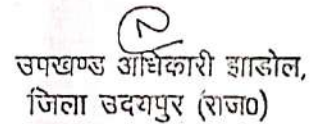 उपखण्ड अधिकारी झाडोल,
जिला उदयपुर (राज0)